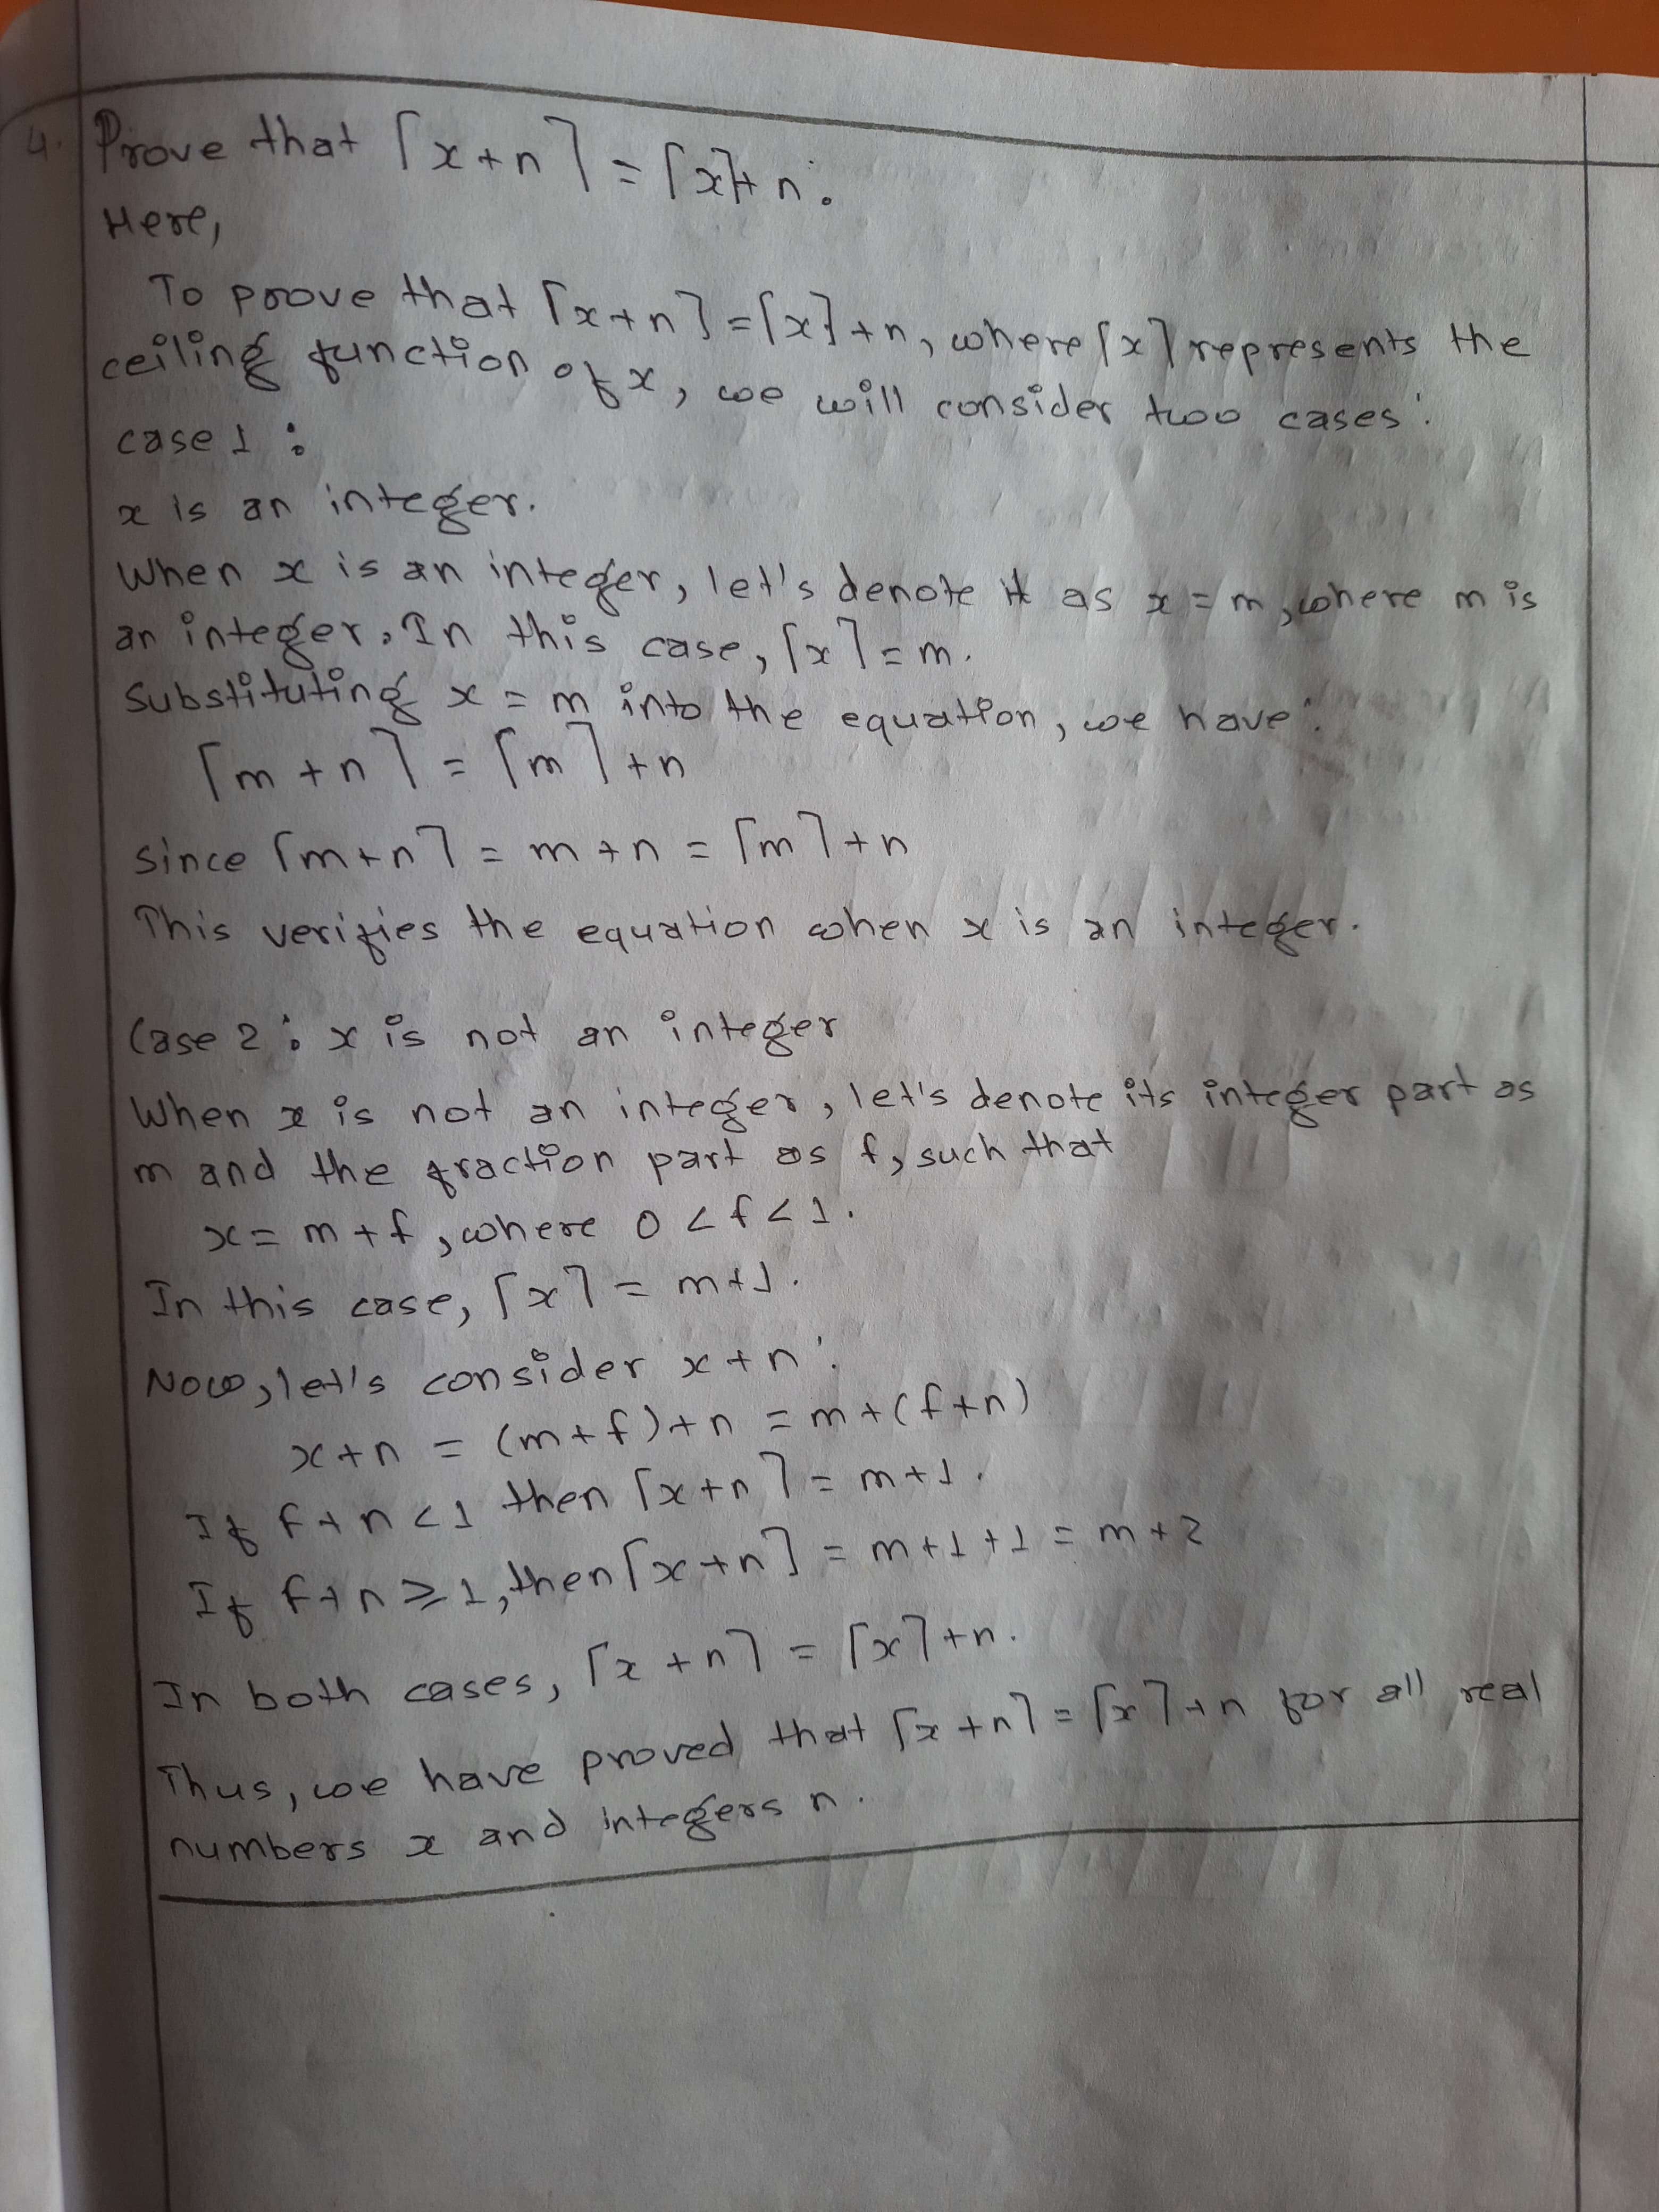 4. Prove that ⌈x+n⌉ = ⌈x⌉+n.
Here,
To prove that ⌈x+n⌉ = ⌈x⌉+n, where ⌈x⌉ represents the
ceiling function of x, we will consider two cases:
case 1:
x is an integer.
When x is an integer, let's denote it as x = m, where m is
an integer. In this case, ⌈x⌉ = m.
Substituting x = m into the equation, we have:
⌈m+n⌉ = ⌈m⌉+n
since ⌈m+n⌉ = m+n = ⌈m⌉+n
This verifies the equation when x is an integer.
Case 2: x is not an integer
When x is not an integer, let's denote its integer part as
m and the fraction part as f, such that
x = m+f, where 0 < f < 1.
In this case, ⌈x⌉ = m+1.
Now, let's consider x+n:
x+n = (m+f)+n = m+(f+n)
If f+n < 1 then ⌈x+n⌉ = m+1.
If f+n ≥ 1, then ⌈x+n⌉ = m+1+1 = m+2
In both cases, ⌈x+n⌉ = ⌈x⌉+n.
Thus, we have proved that ⌈x+n⌉ = ⌈x⌉+n for all real
numbers x and integers n.